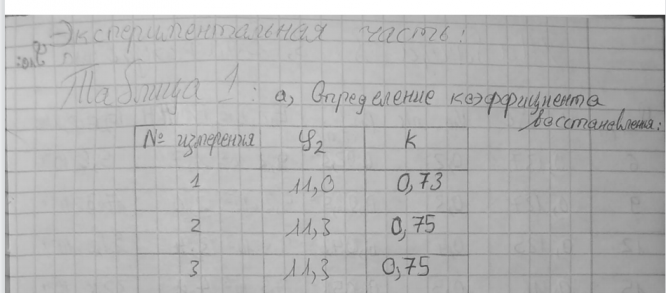 Экспериментальная часть:
Таблица 1: а, Определение коэффициента
восстановления:
№ измерения φ2 K
1 11,0 0,73
2 11,3 0,75
3 11,3 0,75